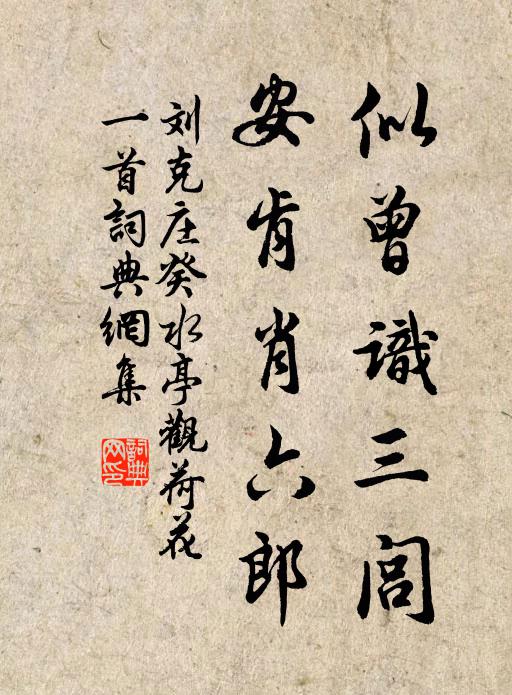 似曾識三閭
安肯肖六郎
刘克庄癸水亭觀荷花
一首詞典網集
詞典
网印